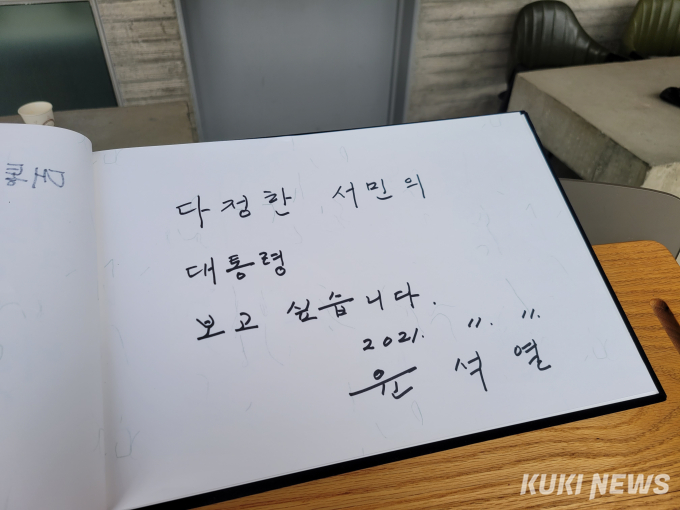 다정한 서민의
대통령
보고 싶습니다.
2021. 11. 11.
윤석열
KUKI NEWS